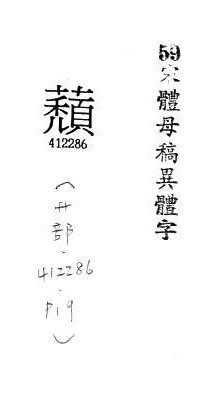 59宋體母稿異體字
蘈
412286
（艹部．412286．P19）